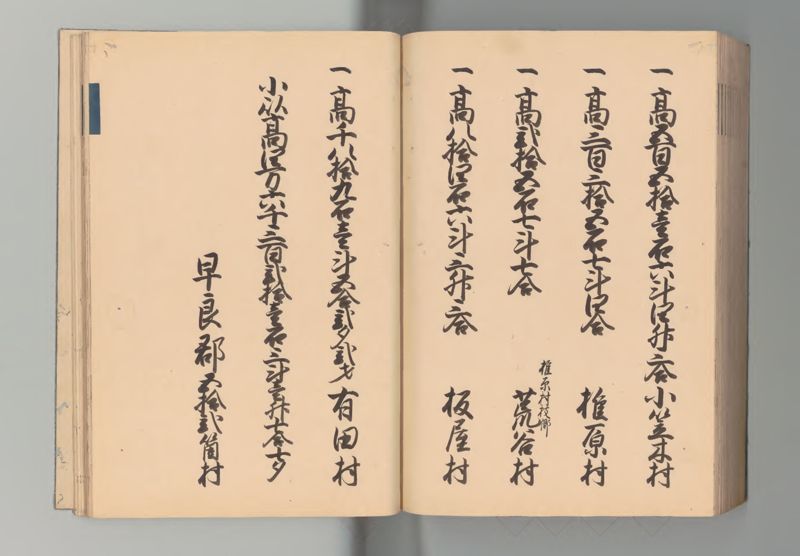 一高五百五拾壱石六斗四升六合小笠木村
一高三百三拾五石七斗四合 椎原村
一高弐拾五石七斗七合 椎原村枝郷 荒谷村
一高八拾四石六斗三升六合 板屋村
一高千八拾九石壱斗五合弐夕弐才 有田村
小以高四万六千三百弐拾壱石三斗壱升七合七夕
早良郡五拾弐箇村